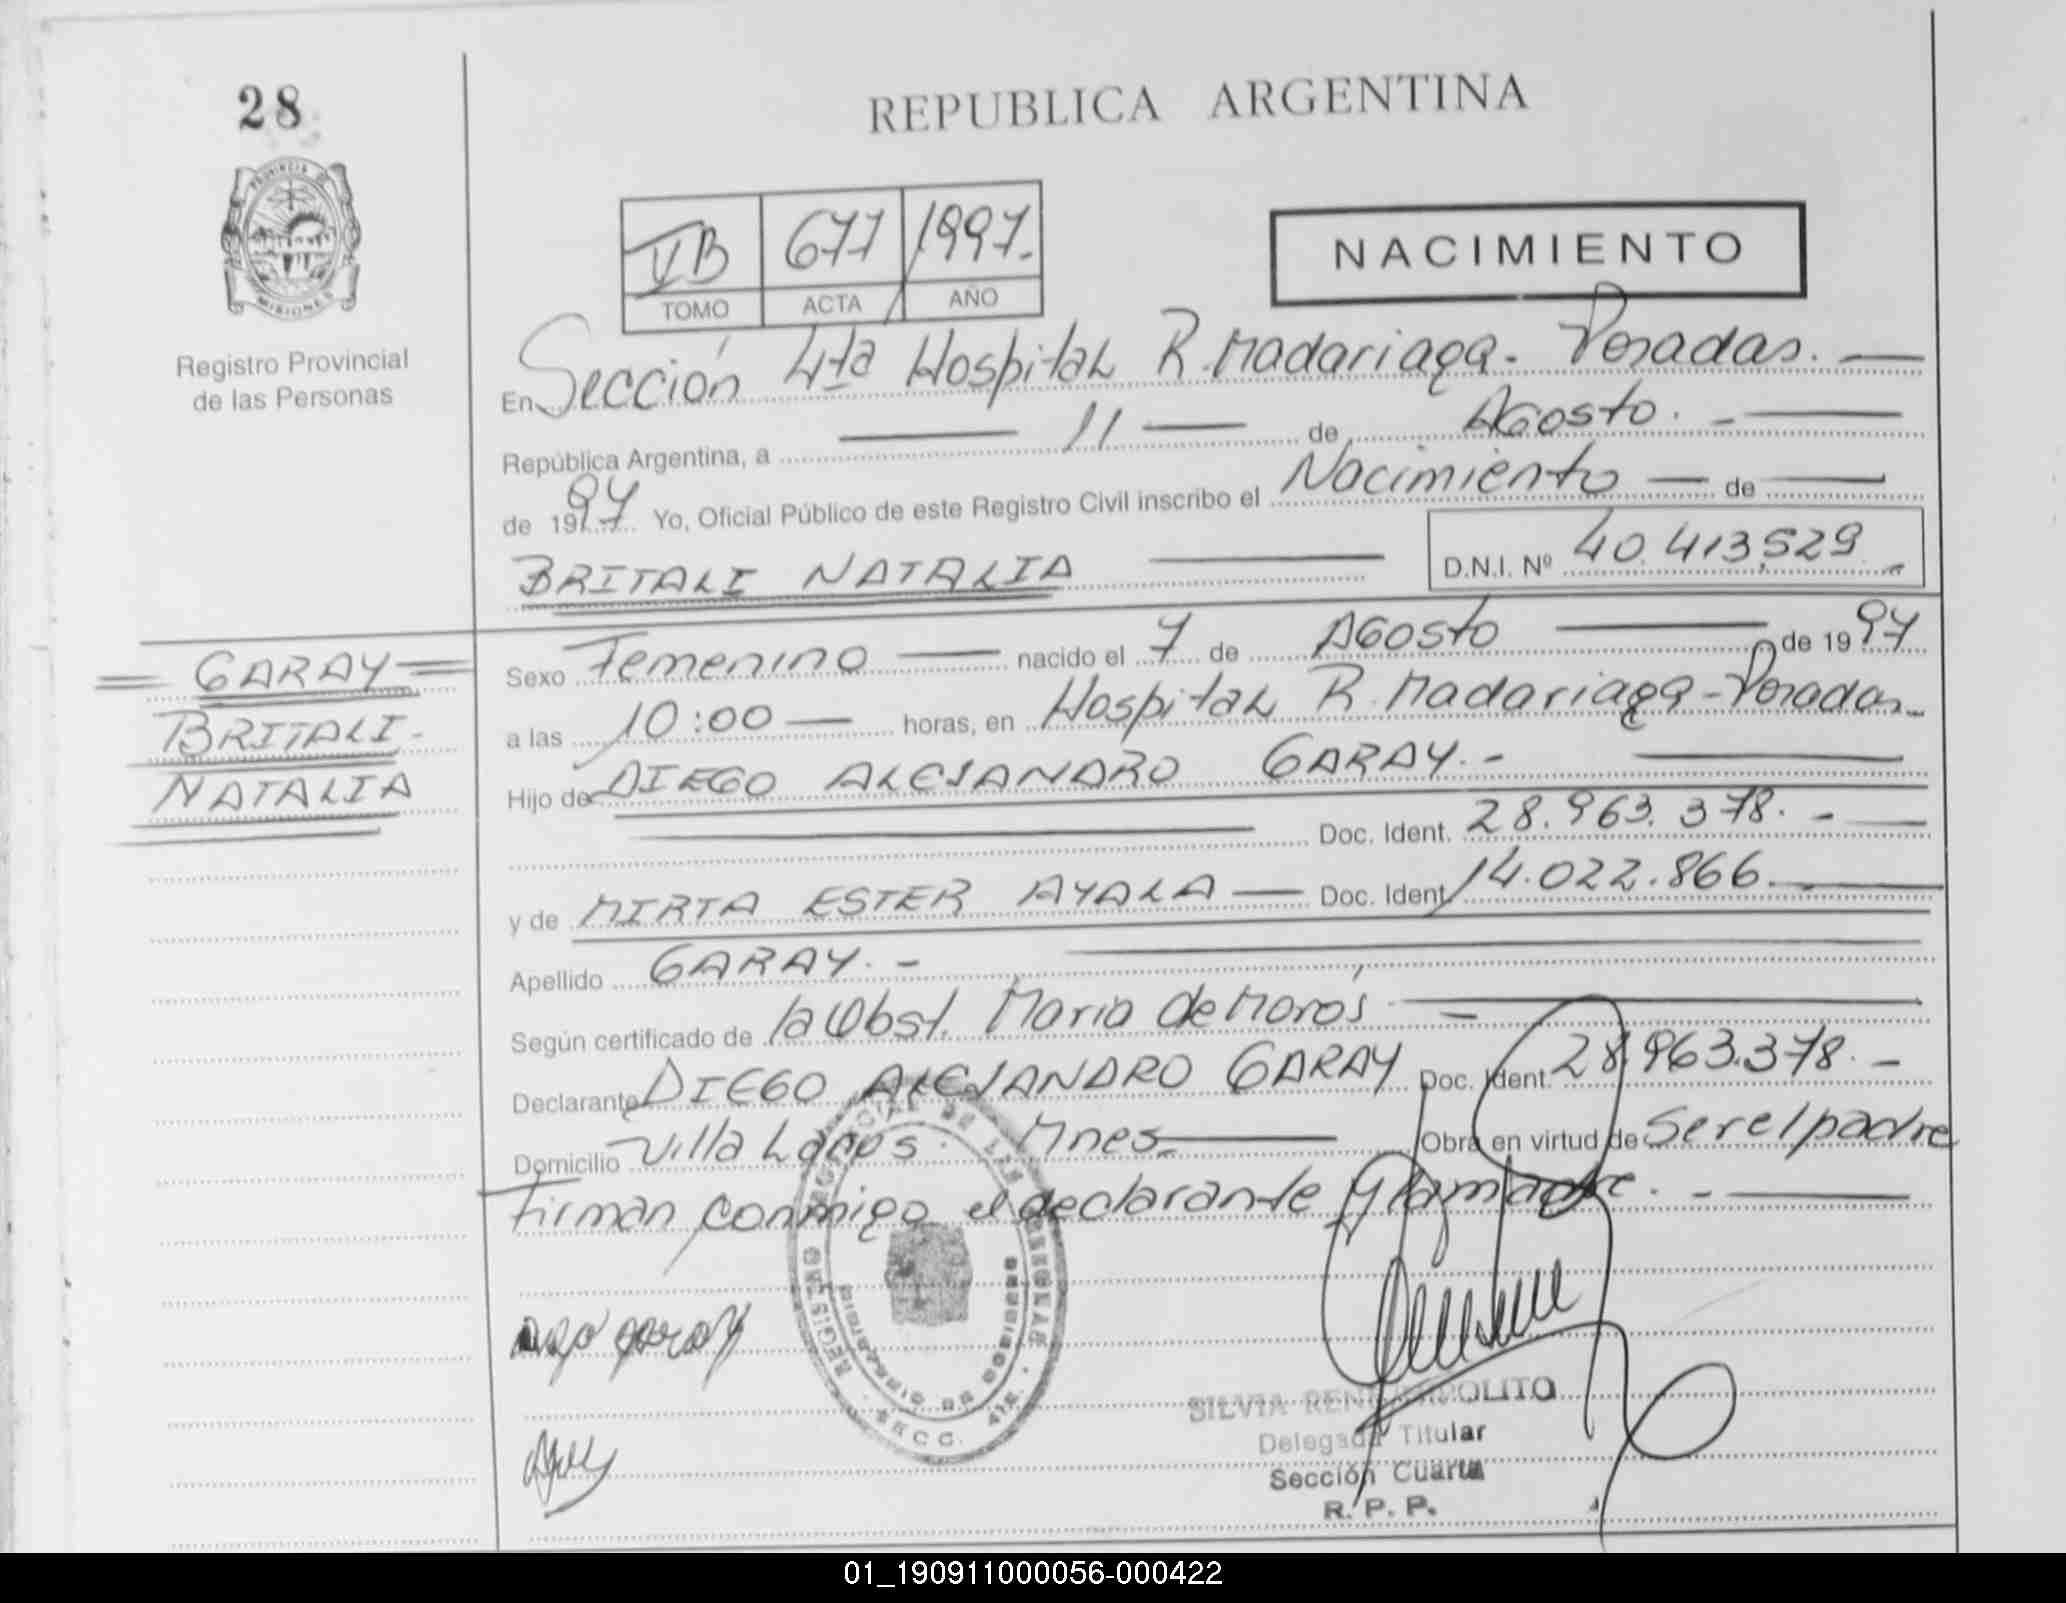 28
REPUBLICA ARGENTINA
PROVINCIA DE
MISIONES
Registro Provincial
de las Personas
VB 677 1997.
TOMO ACTA AÑO
NACIMIENTO
En Sección 4ta Hospital R. Madariaga - Posadas.
República Argentina, a 11 de Agosto. -
de 1997 Yo, Oficial Público de este Registro Civil inscribo el Nacimiento de
BRITALI NATALIA D.N.I. Nº 40.413.529
Sexo Femenino nacido el 7 de AGosto de 1997
a las 10:00 horas, en Hospital R. Madariaga - Posadas
Hijo de DIEGO ALEJANDRO GARAY. -
Doc. Ident. 28.963.378. -
y de MIRTA ESTER AYALA Doc. Ident. 14.022.866.
Apellido GARAY. -
Según certificado de la Obst. Maria de Moros
Declarante DIEGO ALEJANDRO GARAY Doc. Ident. 28.963.378. -
Domicilio Villa Mnes. Obra en virtud de ser el padre
Firman conmigo el declarante y la madre. -
GARAY
BRITALI -
NATALIA
REGISTRO PROVINCIAL DE LAS PERSONAS
SECC. 4ta.
SILVIA HIPOLITO
Delegada Titular
Sección Cuarta
R. P. P.
01_190911000056-000422